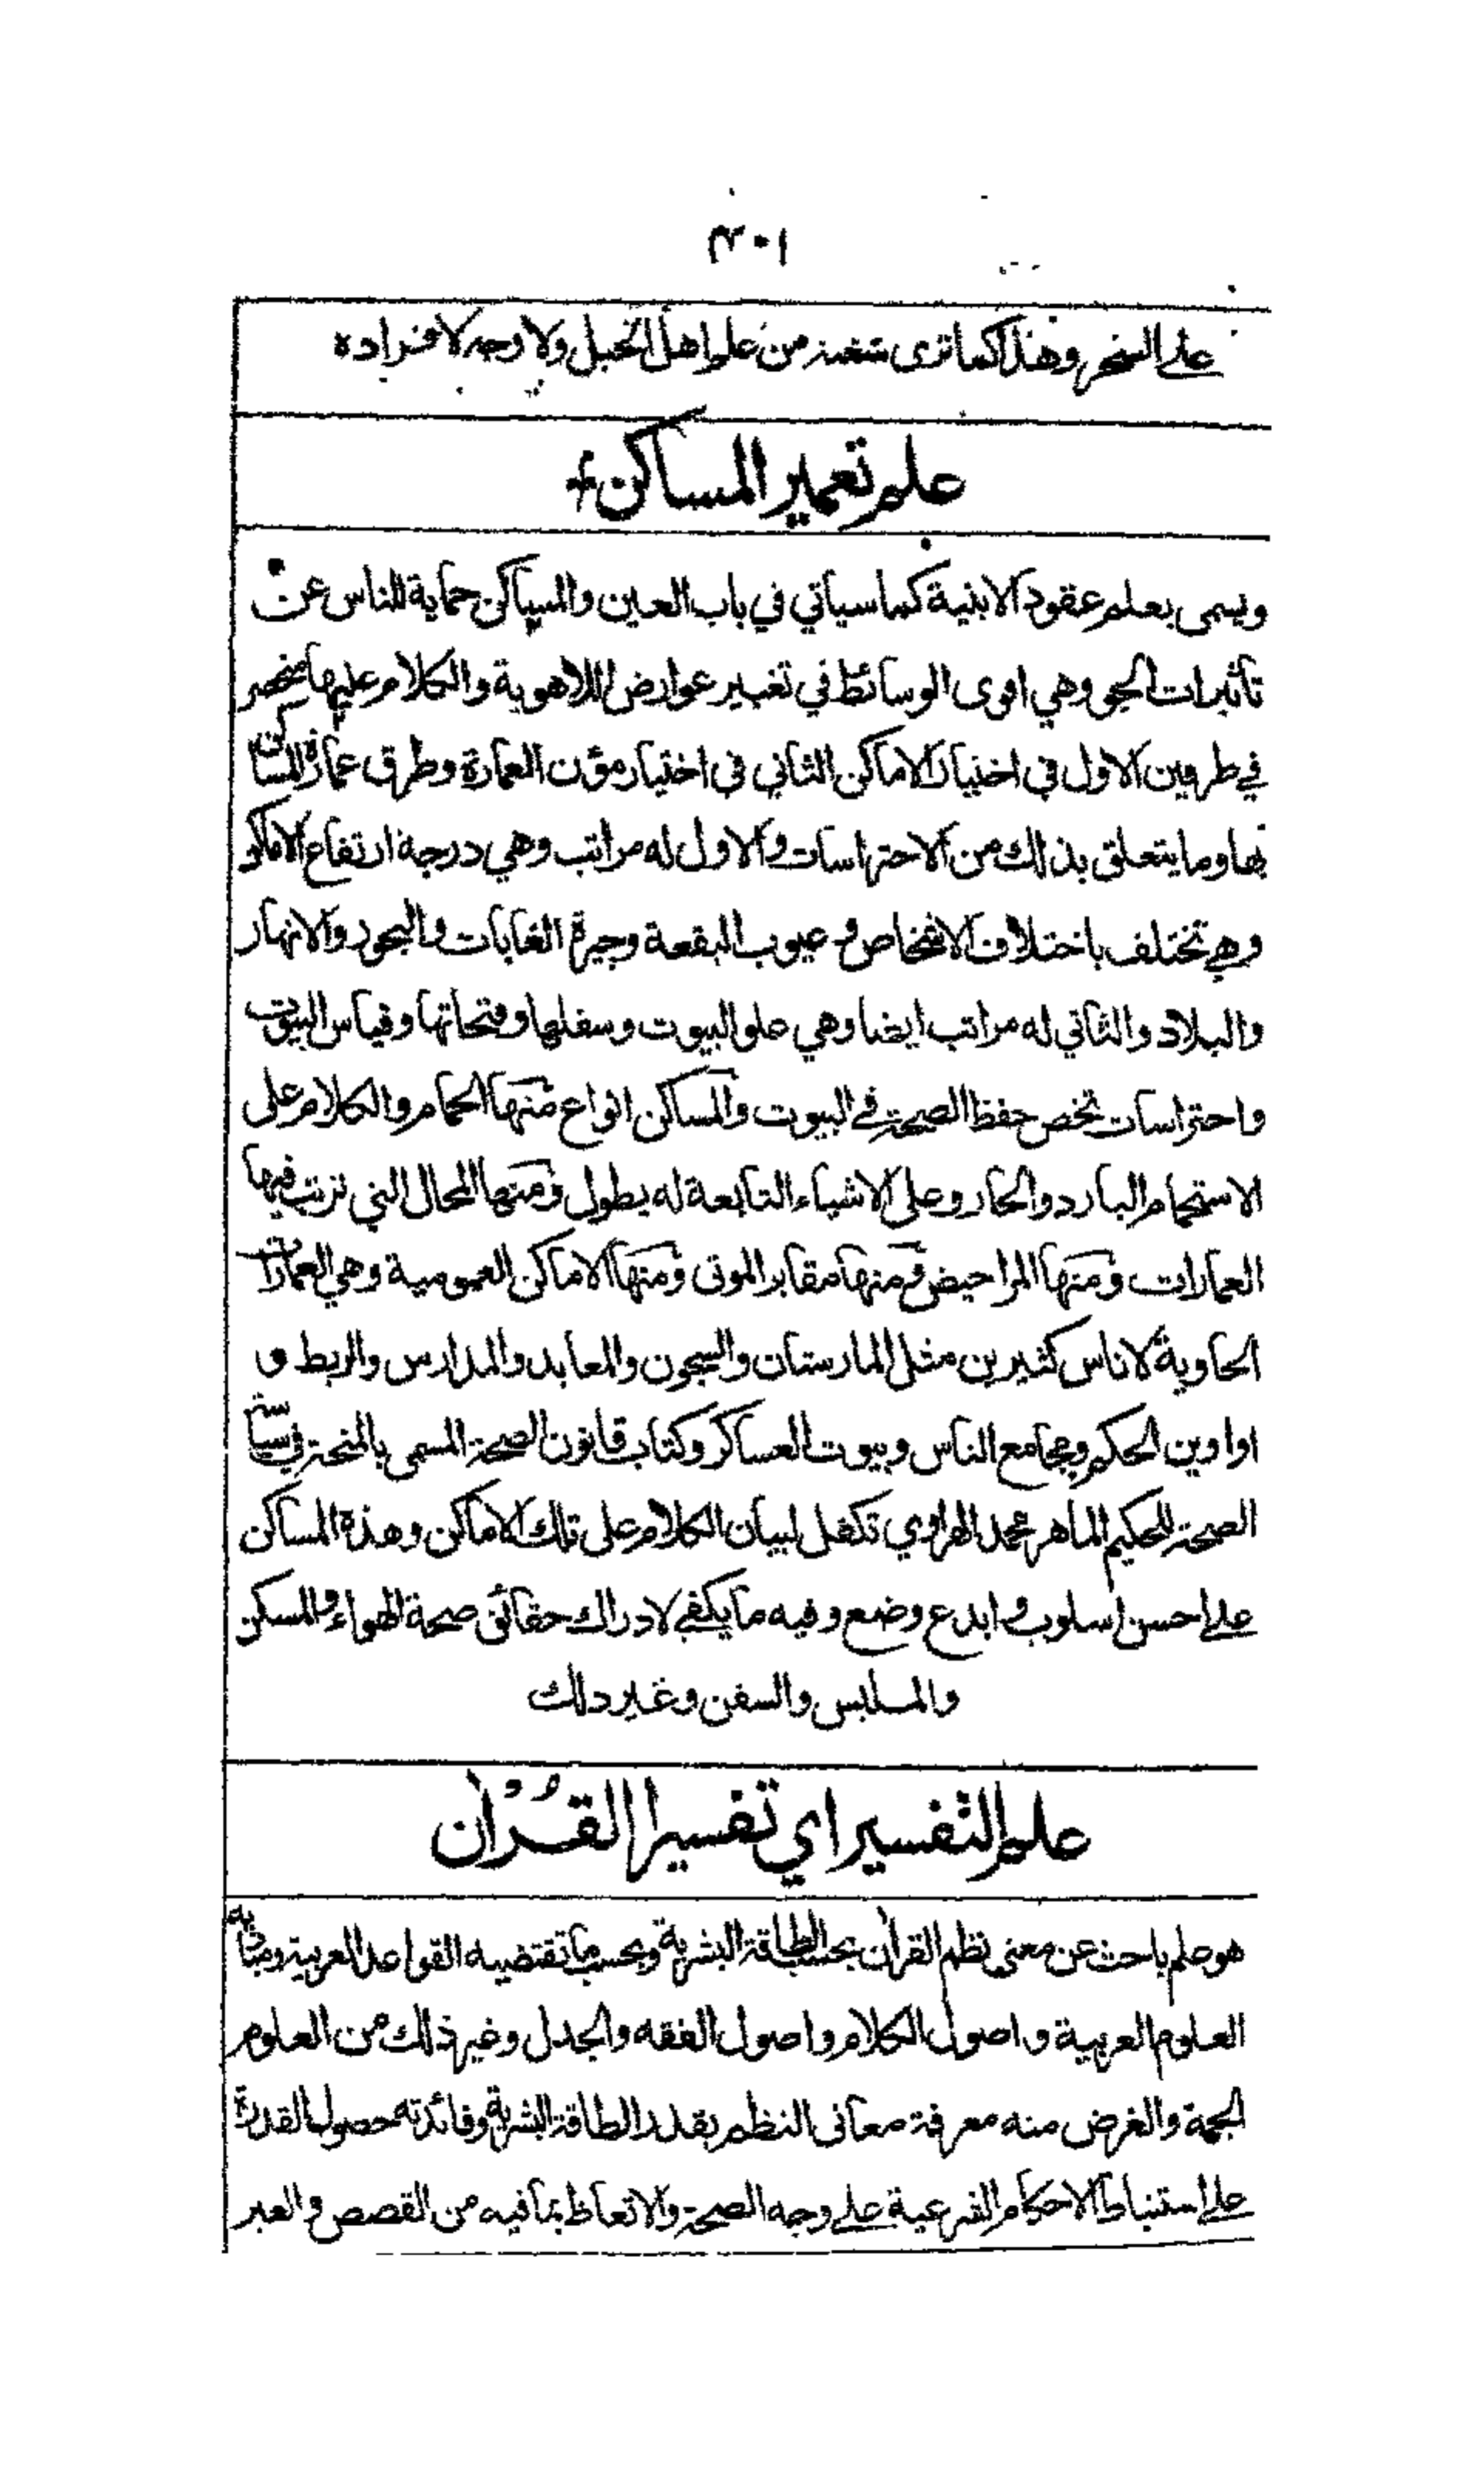 ٣٠١
على السخر وهذا كما ترى شعبة من علم اهل التخيل ولا وجه لافراده
علم تعمير المساكن
ويسمى بعلم عقود الابنية كما سياتي في باب العين والمساكن حماية للناس عن
تأثيرات الجو وهي اقوى الوسائط في تغيير عوارض اللاهوية والكلام عليها منحصر
في طرفين الاول في اختيار الاماكن الثاني في اختيار مؤن العمارة وطرق عمارة المساكن
بها وما يتعلق بذلك من الاحتراسات والاول له مراتب وهي درجة ارتفاع الاماكن
وهي تختلف باختلاف الاشخاص و عيوب البقعة وجيرة الغابات والبحور والانهار
والبلاد والثاني له مراتب ايضا وهي علو البيوت وسفلها وفتحاتها وقياس البيوت
واحتراسات تخص حفظ الصحة في البيوت والمساكن انواع منها الحمام والكلام على
الاستحمام البارد والحار وعلى الاشياء التابعة له يطول ومنها المحال التي ترتب فيها
العمارات ومنها المراحيض ومنها مقابر الموتى ومنها الاماكن العمومية وهي العمارات
الحاوية لاناس كثيرين مثل المارستان والسجون والمعابد والمدارس والربط و
اواوين الحكم ومجامع الناس وبيوت العساكر وكتاب قانون الصحة المسمى بالمنحة في سياسة
الصحة للحكيم الماهر محمد الهراوي تكفل لبيان الكلام على تلك الاماكن وهذة المساكن
على احسن اسلوب و ابدع وضع وفيه ما يكفي لادراك حقائق صحة الهواء والمسكن
والملبس والسفن وغير ذلك
علم التفسير اي تفسير القُرْان
هو علم باحث عن معنى نظم القران بحسب الطاقة البشرية وبحسب ما تقتضيه القواعد العربية ومباديه
العلوم العربية و اصول الكلام واصول الفقه والجدل وغير ذلك من العلوم
الجمة والغرض منه معرفة معاني النظم بقدر الطاقة البشرية وفائدته حصول القدرة
على استنباط الاحكام الشرعية على وجه الصحة والاتعاظ بما فيه من القصص والعبر